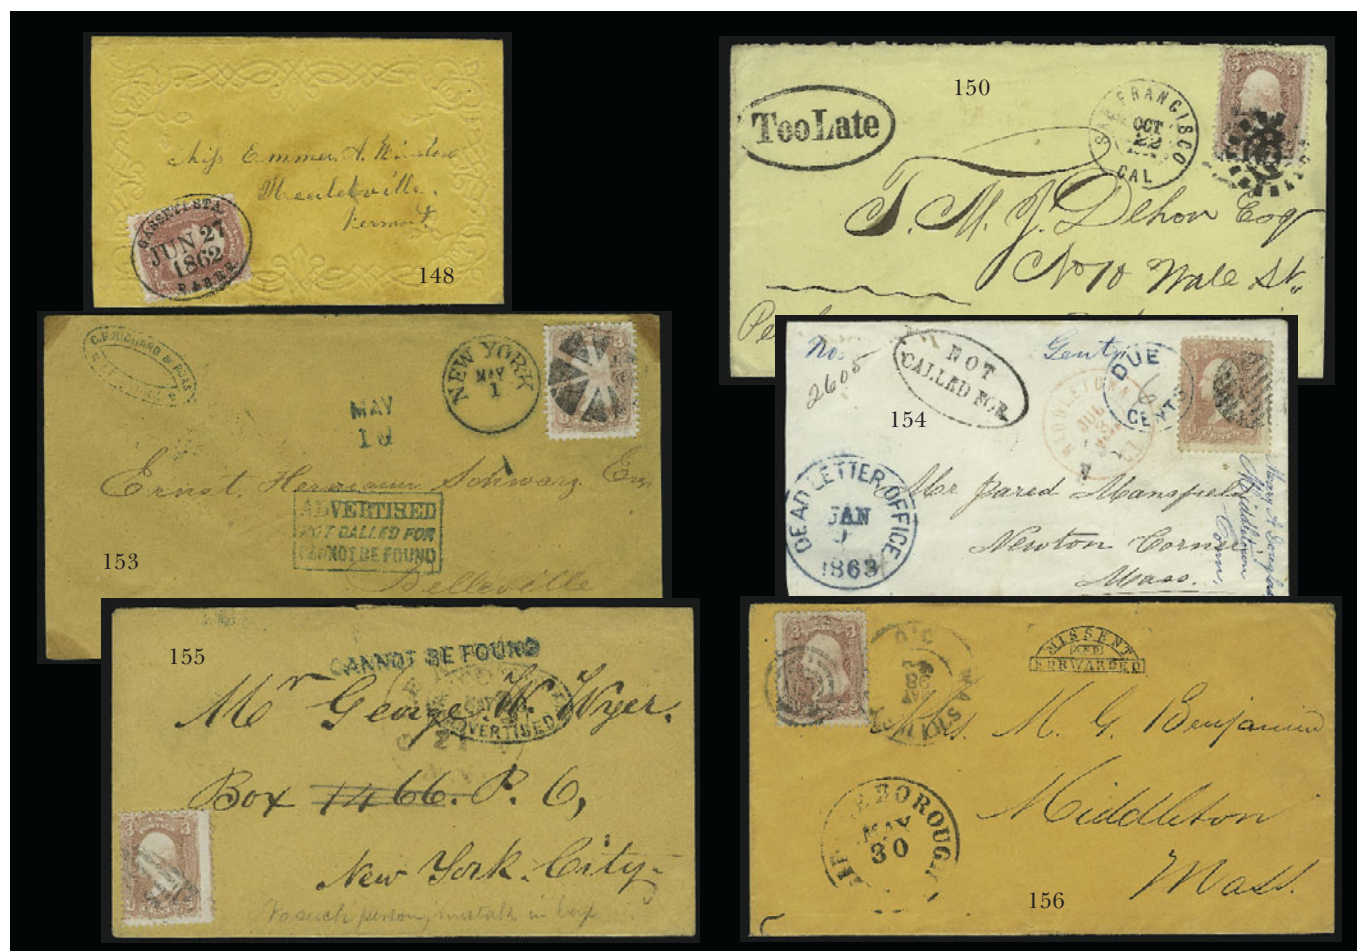 Miss Emma A.
Vermont
JUN 27
1862
R.R.D.R.E.
148
150
Too Late
SAN FRANCISCO
OCT
22
CAL
3
3
T. M. J. Dehon Esq
No 10 Wall St.
C.B. RICHARD & BOAS
NEW YORK
MAY
1
3
MAY
10
Ernst Hermann Schwarz Esq
ADVERTISED
NOT CALLED FOR
CANNOT BE FOUND
Belleville
153
No.
2605
NOT
CALLED FOR
154
DUE
6
CENTS
MIDDLETOWN
DEAD LETTER OFFICE
JAN
1863
Mr Jared Mansfield
Newton Corner
Mass.
Henry A Douglas
Middletown
Conn.
155
CANNOT BE FOUND
ADVERTISED
Mr George W. Wyer.
Box 1466. P. O,
New York. City-
No such person, mistake in box
3
3
3
3
MISSENT
AND
FORWARDED
WASHINGTON
D.C.
Mrs. M. G. Benjamin
Middleton
Mass.
BOROUGH
MAY
30
156